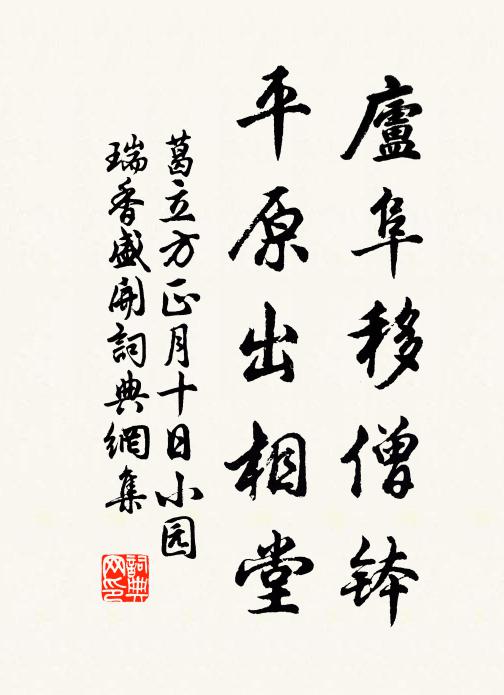 廬阜移僧鉢
平原出相堂
葛立方正月十日小园
瑞香盛開詞典網集
詞典
网印